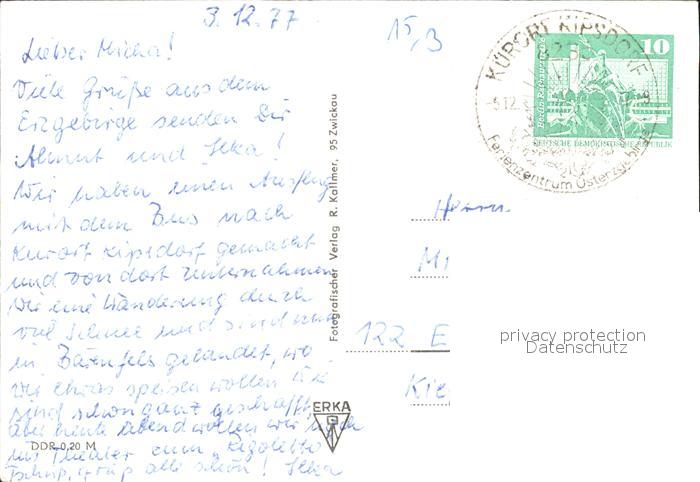 3.12.77
15,3
Lieber Micha!
Viele Grüße aus dem
Erzgebirge senden Dir
Almut und Ilka!
Wir haben einen Ausflug
mit dem Bus nach
Kurort Kipsdorf gemacht
und von dort unternahmen
wir eine Wanderung durch
viel Schnee und sind nun
in Bärenfels gelandet, wo
wir etwas speisen wollen. Wir
sind schon ganz geschafft,
aber heute Abend wollen wir noch
ins Theater zum „Rigoletto
Tschüß, grüß alle schön! Ilka
DDR 0,20 M
Fotografischer Verlag R. Kallmer, 95 Zwickau
ERKA
KURORT KIPSDORF
Ferienzentrum Osterzgebirge
10
DEUTSCHE DEMOKRATISCHE REPUBLIK
Herrn
Mi
122 E
Kie
privacy protection
Datenschutz